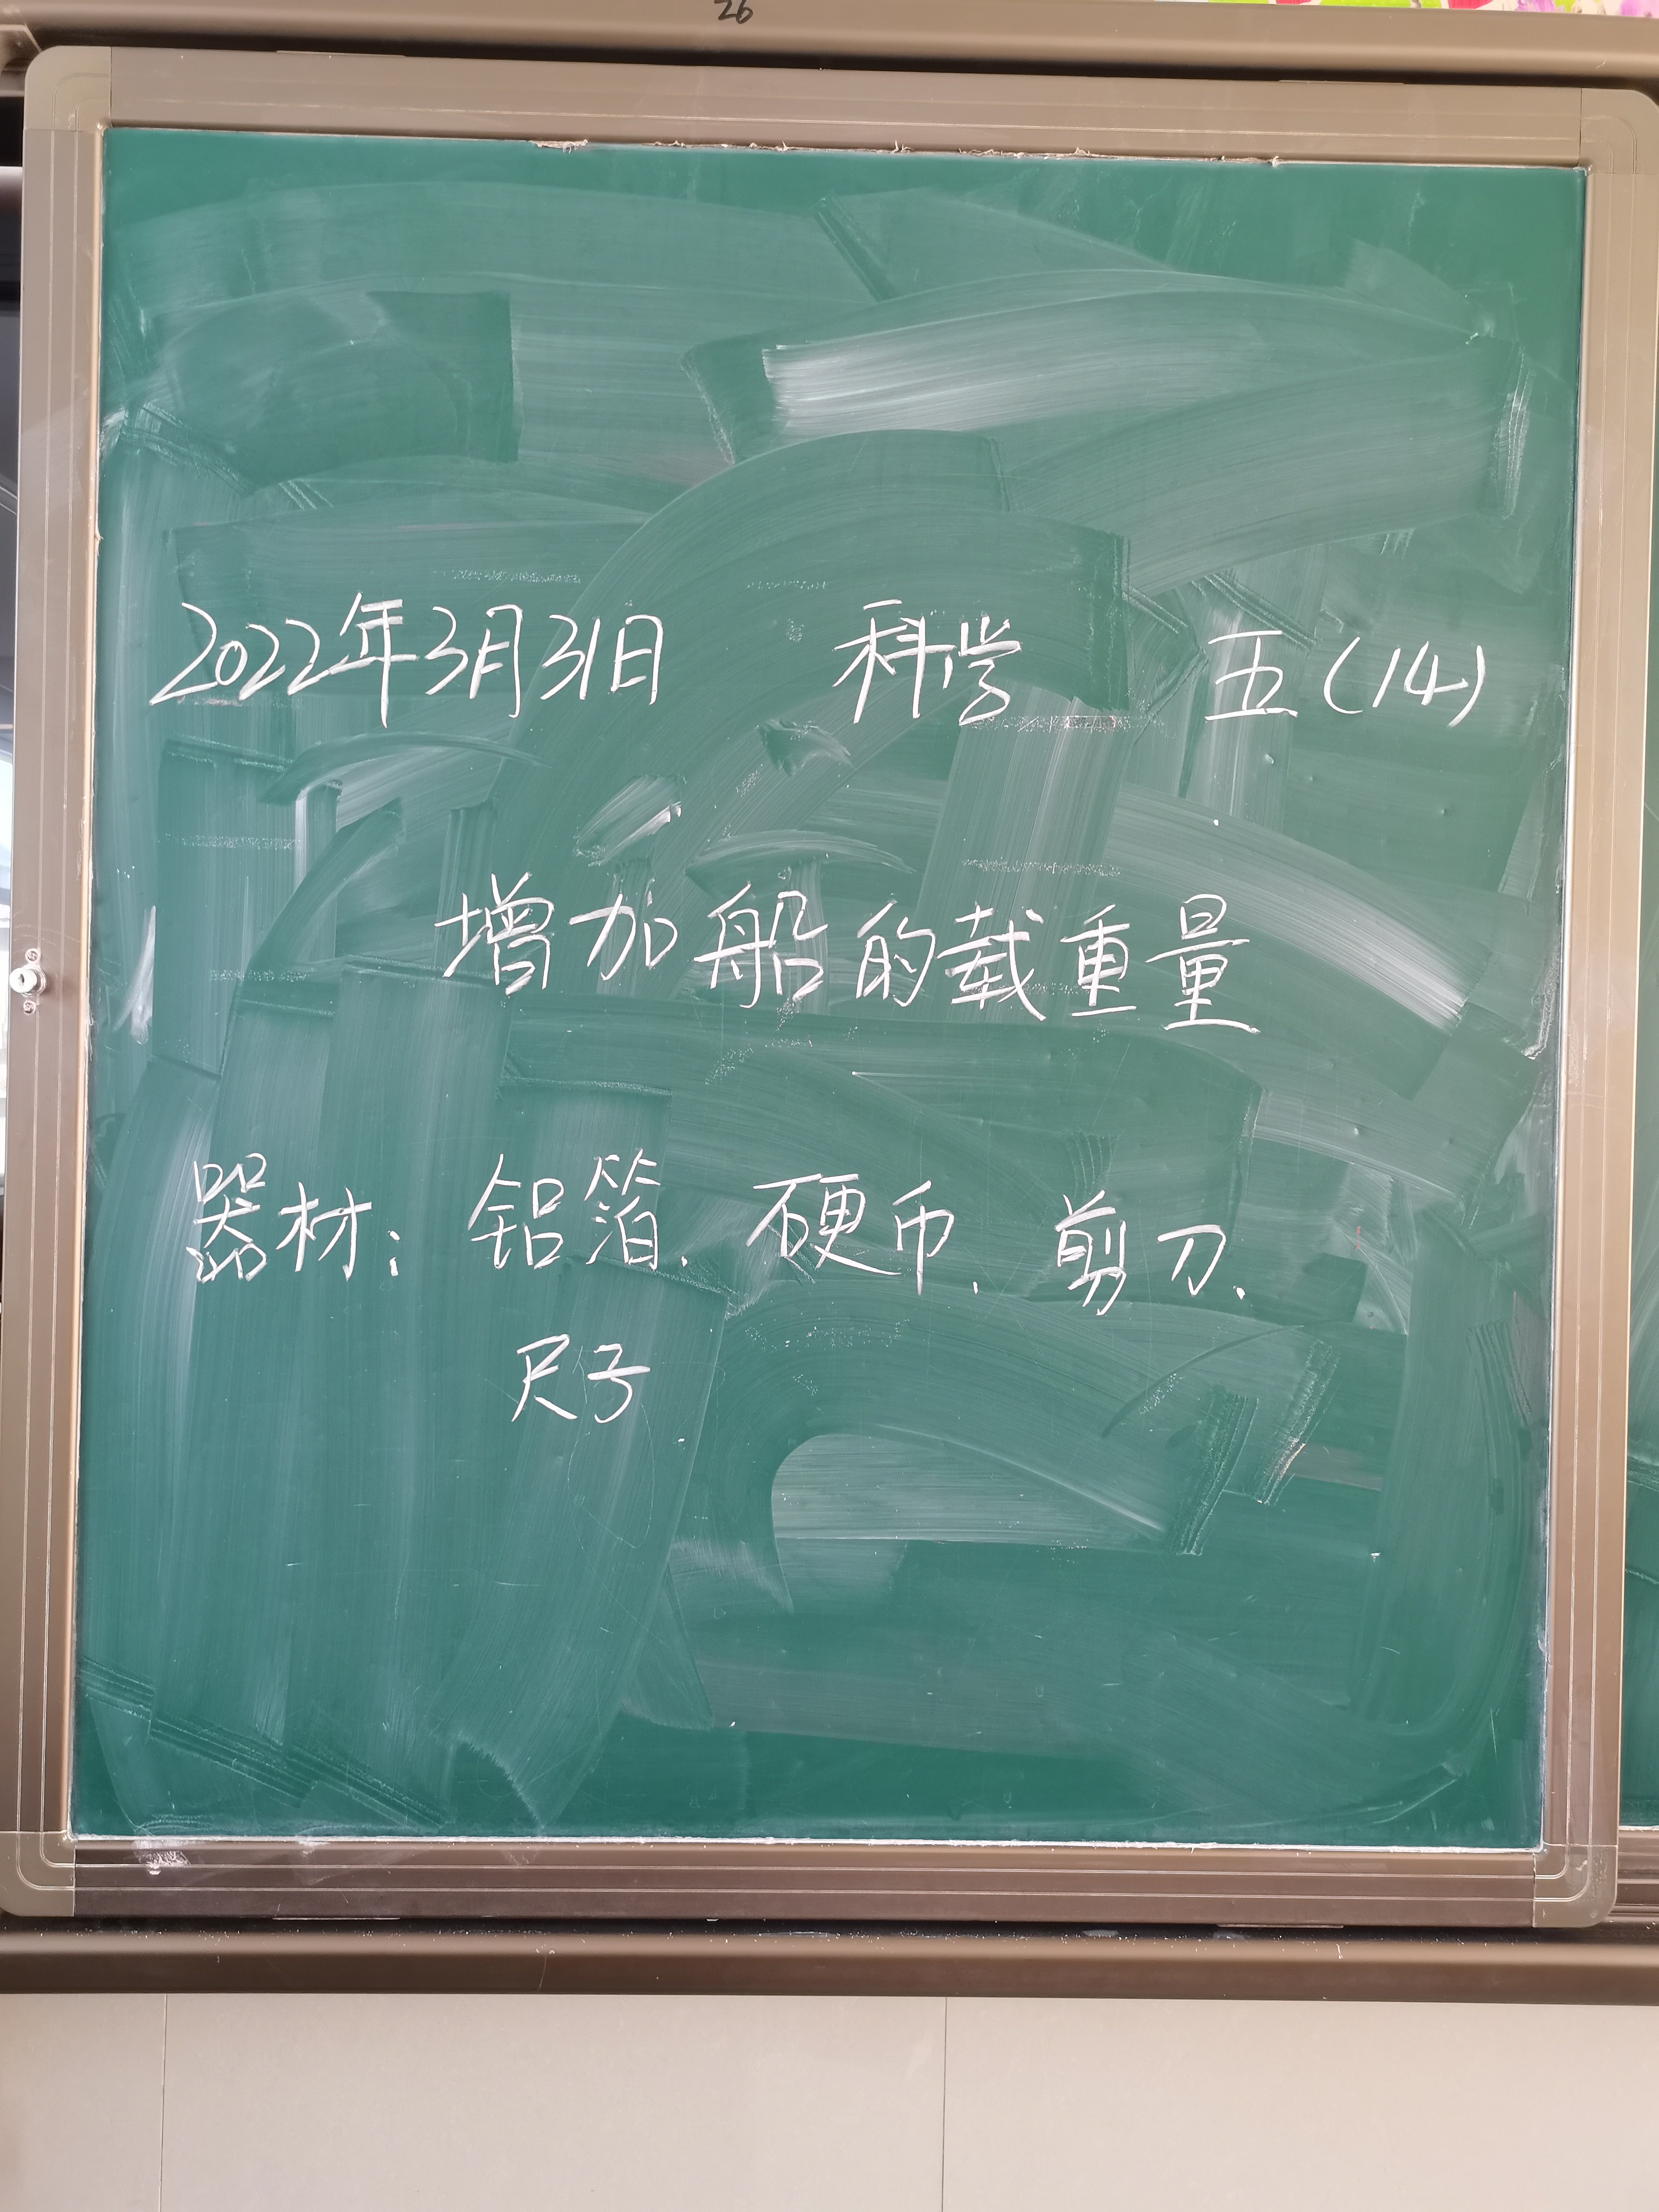 26
2022年3月31日 科学 五(14)
增加船的载重量
器材:铝箔、硬币、剪刀、
尺子